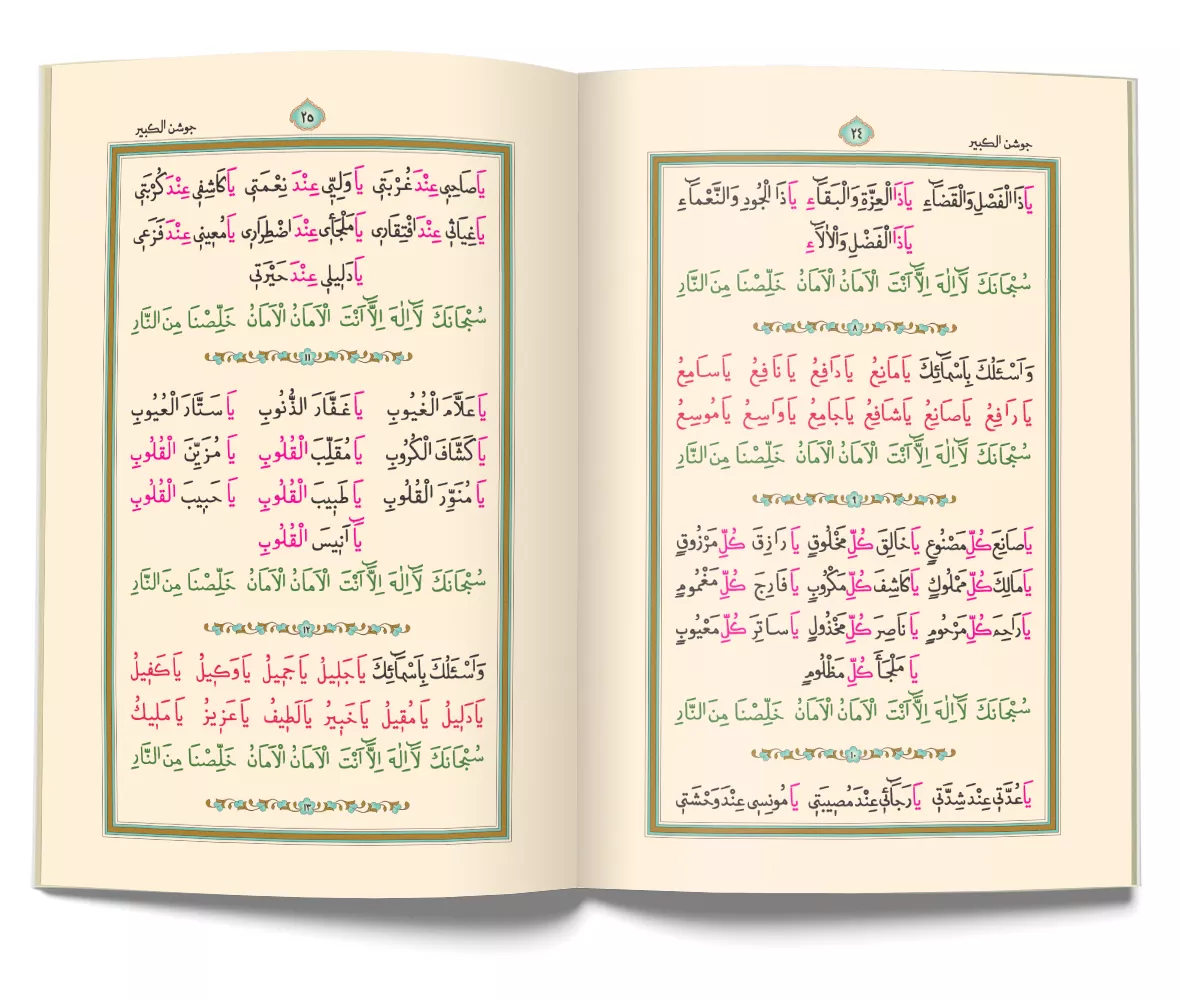 ٢٤
جوشن الكبير
يَا ذَا الْفَصْلِ وَالْقَضَٓاءِ يَا ذَا الْعِزَّةِ وَالْبَقَٓاءِ يَا ذَا الْجُودِ وَالنَّعْمَٓاءِ
يَا ذَا الْفَضْلِ وَالْاٰلَٓاءِ
سُبْحَانَكَ لَٓا اِلٰهَ اِلَّٓا اَنْتَ الْاَمَانُ الْاَمَانُ خَلِّصْنَا مِنَ النَّارِ
٨
وَاَسْئَلُكَ بِاَسْمَٓائِكَ يَا مَانِعُ يَا دَافِعُ يَا نَافِعُ يَا سَامِعُ
يَا رَافِعُ يَا صَانِعُ يَا شَافِعُ يَا جَامِعُ يَا وَاسِعُ يَا مُوسِعُ
سُبْحَانَكَ لَٓا اِلٰهَ اِلَّٓا اَنْتَ الْاَمَانُ الْاَمَانُ خَلِّصْنَا مِنَ النَّارِ
٩
يَا صَانِعَ كُلِّ مَصْنُوعٍ يَا خَالِقَ كُلِّ مَخْلُوقٍ يَا رَازِقَ كُلِّ مَرْزُوقٍ
يَا مَالِكَ كُلِّ مَمْلُوكٍ يَا كَاشِفَ كُلِّ مَكْرُوبٍ يَا فَارِجَ كُلِّ مَغْمُومٍ
يَا رَاحِمَ كُلِّ مَرْحُومٍ يَا نَاصِرَ كُلِّ مَخْذُولٍ يَا سَاتِرَ كُلِّ مَعْيُوبٍ
يَا مَلْجَأَ كُلِّ مَظْلُومٍ
سُبْحَانَكَ لَٓا اِلٰهَ اِلَّٓا اَنْتَ الْاَمَانُ الْاَمَانُ خَلِّصْنَا مِنَ النَّارِ
١٠
يَا عُدَّتٖي عِنْدَ شِدَّتٖي يَا رَجَٓائٖي عِنْدَ مُصٖيبَتٖي يَا مُونِسٖي عِنْدَ وَحْشَتٖي
٢٥
جوشن الكبير
يَا صَاحِبٖي عِنْدَ غُرْبَتٖي يَا وَلِيّٖي عِنْدَ نِعْمَتٖي يَا كَاشِفٖي عِنْدَ كُرْبَتٖي
يَا غِيَاثٖي عِنْدَ افْتِقَارٖي يَا مَلْجَأٖي عِنْدَ اضْطِرَارٖي يَا مُعٖينٖي عِنْدَ فَزَعٖي
يَا دَلٖيلٖي عِنْدَ حَيْرَتٖي
سُبْحَانَكَ لَٓا اِلٰهَ اِلَّٓا اَنْتَ الْاَمَانُ الْاَمَانُ خَلِّصْنَا مِنَ النَّارِ
١١
يَا عَلَّامَ الْغُيُوبِ يَا غَفَّارَ الذُّنُوبِ يَا سَتَّارَ الْعُيُوبِ
يَا كَشَّافَ الْكُرُوبِ يَا مُقَلِّبَ الْقُلُوبِ يَا مُزَيِّنَ الْقُلُوبِ
يَا مُنَوِّرَ الْقُلُوبِ يَا طَبٖيبَ الْقُلُوبِ يَا حَبٖيبَ الْقُلُوبِ
يَٓا اَنٖيسَ الْقُلُوبِ
سُبْحَانَكَ لَٓا اِلٰهَ اِلَّٓا اَنْتَ الْاَمَانُ الْاَمَانُ خَلِّصْنَا مِنَ النَّارِ
١٢
وَاَسْئَلُكَ بِاَسْمَٓائِكَ يَا جَلٖيلُ يَا جَمٖيلُ يَا وَكٖيلُ يَا كَفٖيلُ
يَا دَلٖيلُ يَا مُقٖيلُ يَا خَبٖيرُ يَا لَطٖيفُ يَا عَزٖيزُ يَا مَلٖيكُ
سُبْحَانَكَ لَٓا اِلٰهَ اِلَّٓا اَنْتَ الْاَمَانُ الْاَمَانُ خَلِّصْنَا مِنَ النَّارِ
١٣